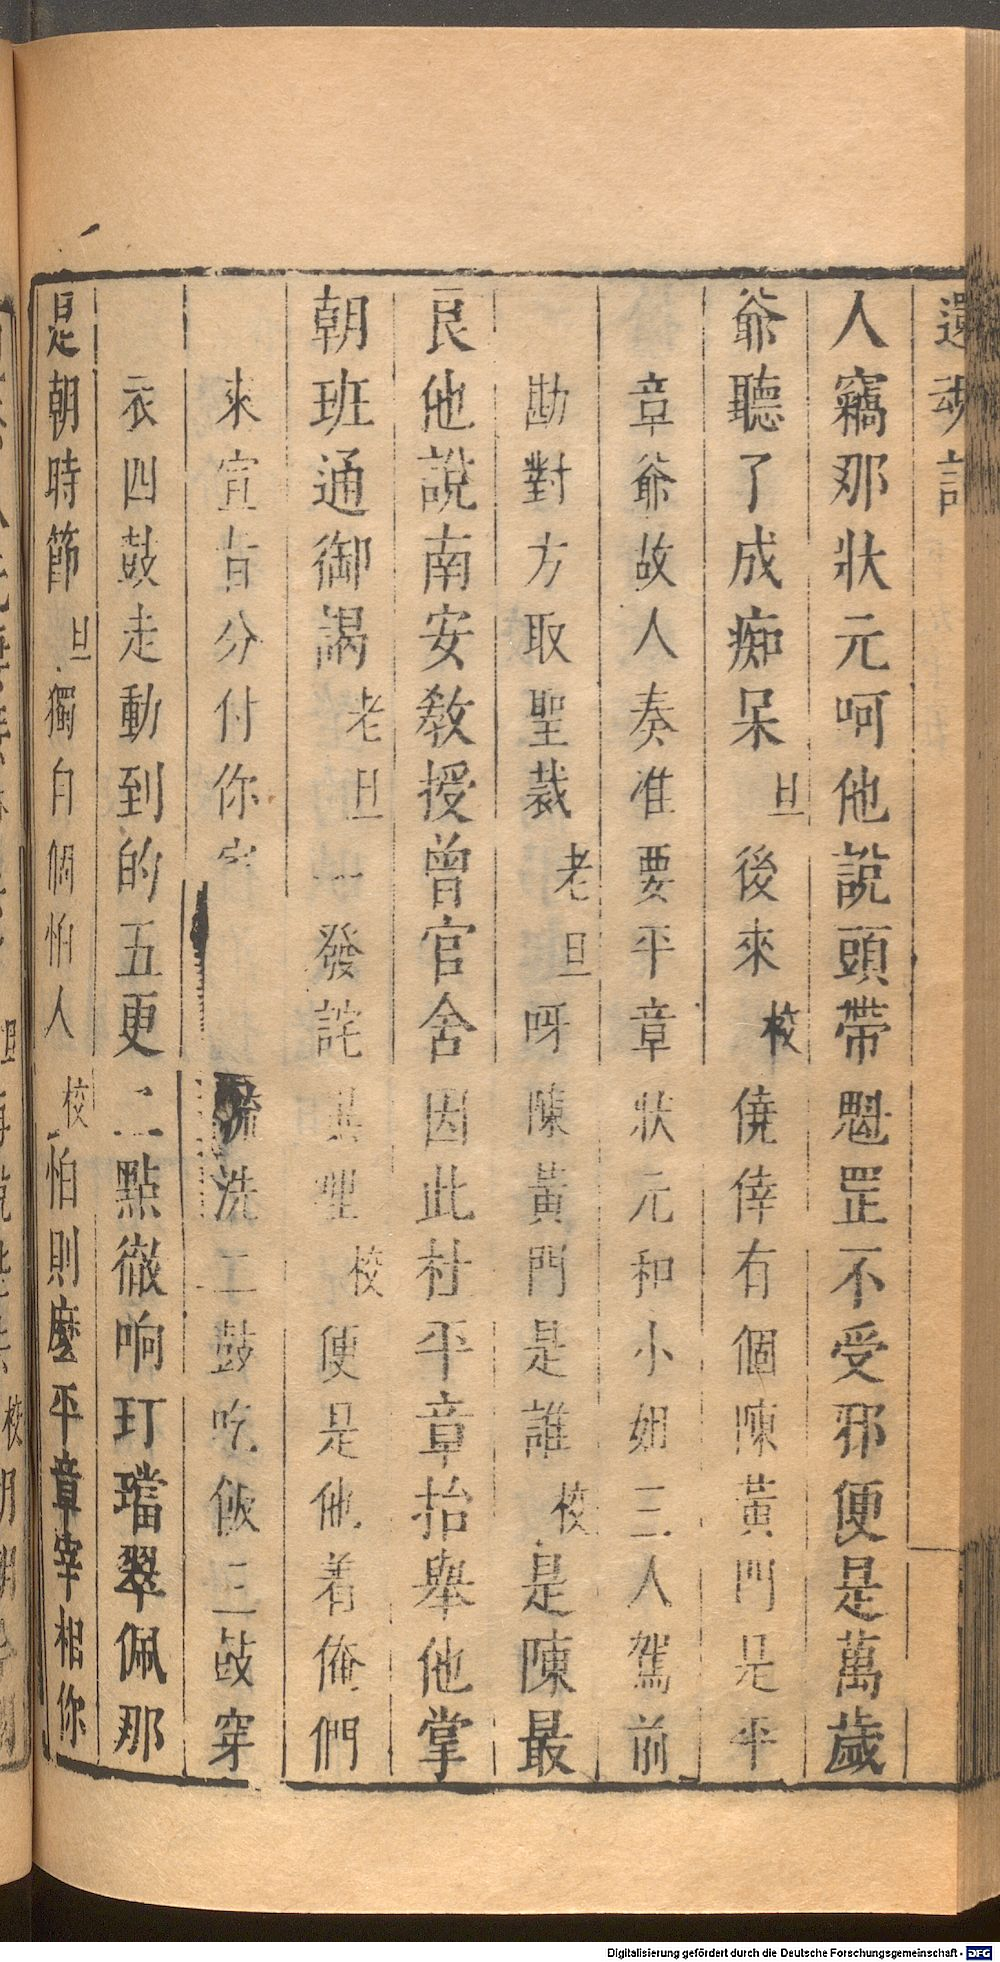 還魂記
人竊那狀元呵他說頭帶魁罡不受邪便是萬歲
爺聽了成痴呆旦後來校僥倖有個陳黃門是平
章爺故人奏准要平章狀元和小姐三人駕前
勘對方取聖裁老旦呀陳黃門是誰校是陳最
良他說南安教授曾官舍因此杜平章抬舉他掌
朝班通御謁老旦一發詫異哩校便是他着俺們
來宣旨分付你家 梳洗二鼓吃飯三鼓穿
衣四鼓走動到的五更三點徹响玎璫翠佩那
是朝時節旦獨自個怕人校怕則麼平章宰相你
Digitalisierung gefördert durch die Deutsche Forschungsgemeinschaft - DFG